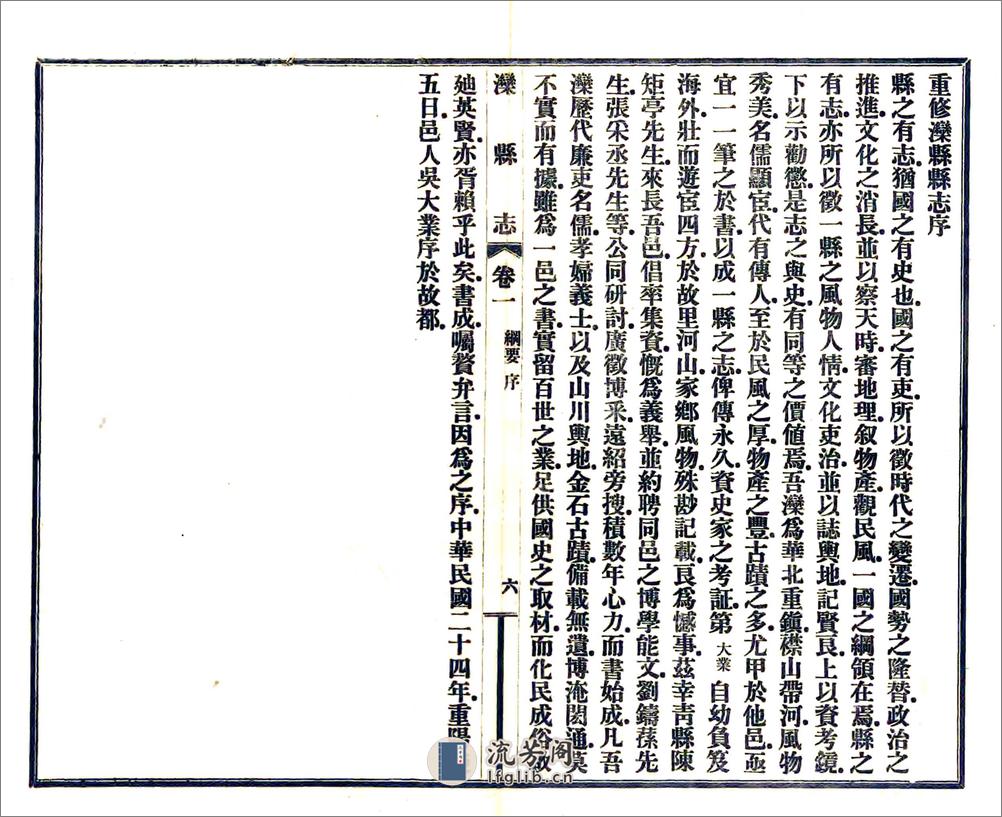 重修灤縣縣志序
縣之有志猶國之有史也國之有吏所以徵時代之變遷國勢之隆替政治之
推進文化之消長並以察天時審地理叙物產觀民風一國之綱領在焉縣之
有志亦所以徵一縣之風物人情文化吏治並以誌輿地記賢良上以資考鏡
下以示勸懲是志之與史有同等之價値焉吾灤爲華北重鎭襟山帶河風物
秀美名儒顯宦代有傳人至於民風之厚物產之豐古蹟之多尤甲於他邑亟
宜一一筆之於書以成一縣之志俾傳永久資史家之考証第大業自幼負笈
海外壯而遊宦四方於故里河山家鄉風物殊尠記載良爲憾事茲幸靑縣陳
矩亭先生來長吾邑倡率集資慨爲義舉並約聘同邑之博學能文劉鑄蓀先
生張采丞先生等公同研討廣徵博采遠紹旁搜積數年心力而書始成凡吾
灤歷代廉吏名儒孝婦義士以及山川輿地金石古蹟備載無遺博淹閎通莫
不實而有據雖爲一邑之書實留百世之業足供國史之取材而化民成俗啟
灤縣志
卷一
綱要 序
六
廸英賢亦胥賴乎此矣書成囑贅弁言因爲之序中華民國二十四年重陽
五日邑人吳大業序於故都
流芳阁
lfglib.cn